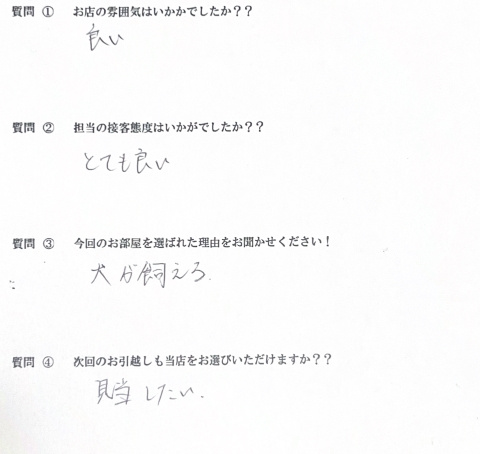 質問 ① お店の雰囲気はいかかでしたか？？
良い
質問 ② 担当の接客態度はいかがでしたか？？
とても良い
質問 ③ 今回のお部屋を選ばれた理由をお聞かせください！
犬が飼える.
質問 ④ 次回のお引越しも当店をお選びいただけますか？？
見当したい.